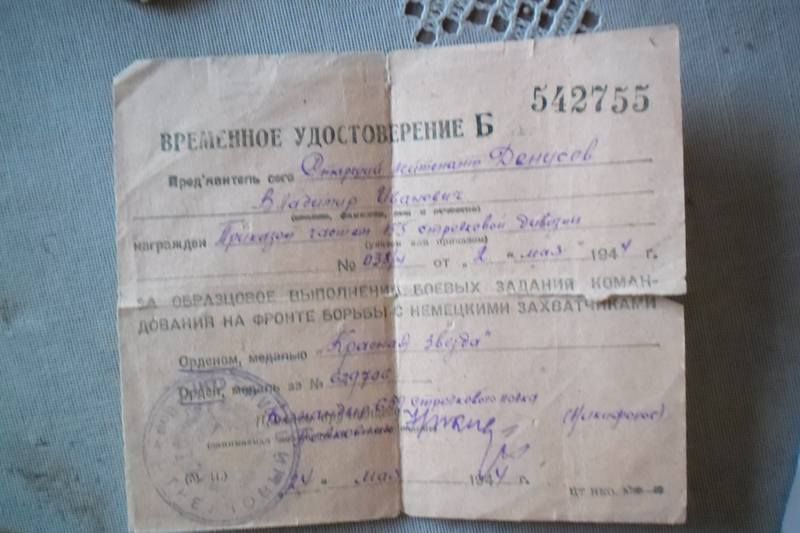 542755
ВРЕМЕННОЕ УДОСТОВЕРЕНИЕ Б
Пред'явитель сего Старший лейтенант Денусов
Владимир Иванович
(звание, фамилия, имя и отчество)
награжден Приказом частям 155 стрелковой дивизии
(указом или приказом)
№ 038/н от „2" мая 1944 г.
ЗА ОБРАЗЦОВОЕ ВЫПОЛНЕНИЕ БОЕВЫХ ЗАДАНИЙ КОМАН-
ДОВАНИЯ НА ФРОНТЕ БОРЬБЫ С НЕМЕЦКИМИ ЗАХВАТЧИКАМИ
Орденом, медалью „Красная звезда"
Орден, медаль за №
Командир стрелкового полка
(М. П.)
„24" мая 1944 г.